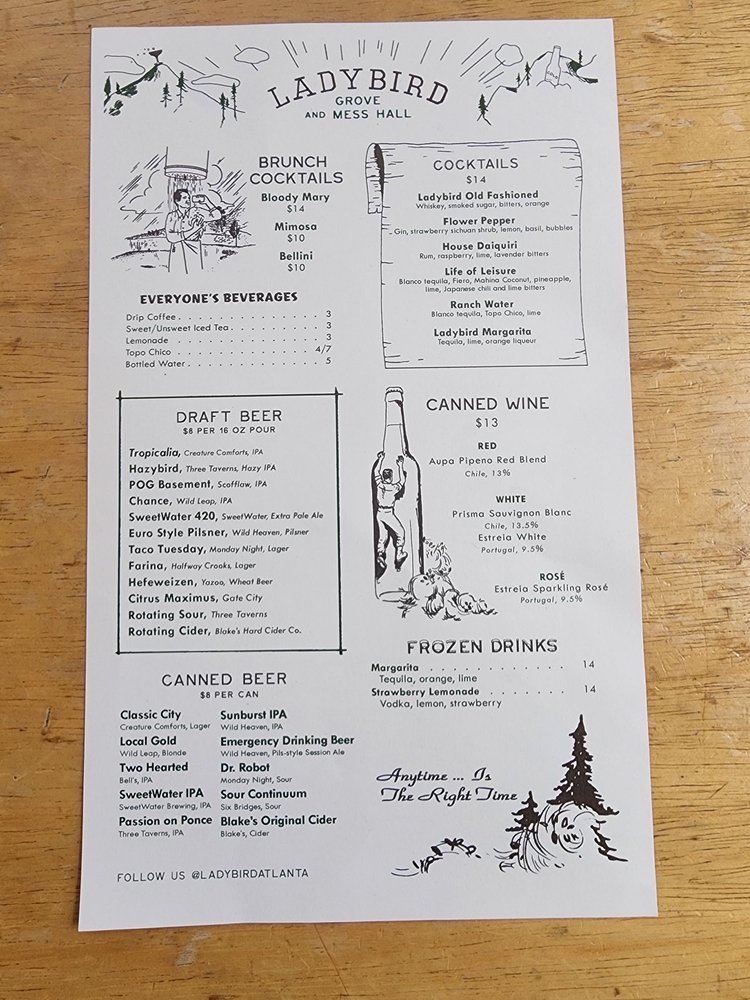 LADYBIRD
GROVE
AND MESS HALL
BRUNCH
COCKTAILS
Bloody Mary
$14
Mimosa
$10
Bellini
$10
EVERYONE'S BEVERAGES
Drip Coffee . . . . . . . . . . . . . . 3
Sweet/Unsweet Iced Tea . . . . . . . . 3
Lemonade . . . . . . . . . . . . . . 3
Topo Chico . . . . . . . . . . . . . 4/7
Bottled Water . . . . . . . . . . . . . 5
COCKTAILS
$14
Ladybird Old Fashioned
Whiskey, smoked sugar, bitters, orange
Flower Pepper
Gin, strawberry sichuan shrub, lemon, basil, bubbles
House Daiquiri
Rum, raspberry, lime, lavender bitters
Life of Leisure
Blanco tequila, Fiero, Mahina Coconut, pineapple,
lime, Japanese chili and lime bitters
Ranch Water
Blanco tequila, Topo Chico, lime
Ladybird Margarita
Tequila, lime, orange liqueur
DRAFT BEER
$8 PER 16 OZ POUR
Tropicalia, Creature Comforts, IPA
Hazybird, Three Taverns, Hazy IPA
POG Basement, Scofflaw, IPA
Chance, Wild Leap, IPA
SweetWater 420, SweetWater, Extra Pale Ale
Euro Style Pilsner, Wild Heaven, Pilsner
Taco Tuesday, Monday Night, Lager
Farina, Halfway Crooks, Lager
Hefeweizen, Yazoo, Wheat Beer
Citrus Maximus, Gate City
Rotating Sour, Three Taverns
Rotating Cider, Blake's Hard Cider Co.
CANNED WINE
$13
RED
Aupa Pipeno Red Blend
Chile, 13%
WHITE
Prisma Sauvignon Blanc
Chile, 13.5%
Estreia White
Portugal, 9.5%
ROSÉ
Estreia Sparkling Rosé
Portugal, 9.5%
FROZEN DRINKS
Margarita . . . . . . . . . . . . 14
Tequila, orange, lime
Strawberry Lemonade . . . . . . . 14
Vodka, lemon, strawberry
CANNED BEER
$8 PER CAN
Classic City
Creature Comforts, Lager
Local Gold
Wild Leap, Blonde
Two Hearted
Bell's, IPA
SweetWater IPA
SweetWater Brewing, IPA
Passion on Ponce
Three Taverns, IPA
Sunburst IPA
Wild Heaven, IPA
Emergency Drinking Beer
Wild Heaven, Pils-style Session Ale
Dr. Robot
Monday Night, Sour
Sour Continuum
Six Bridges, Sour
Blake's Original Cider
Blake's, Cider
Anytime ... Is
The Right Time
FOLLOW US @LADYBIRDATLANTA